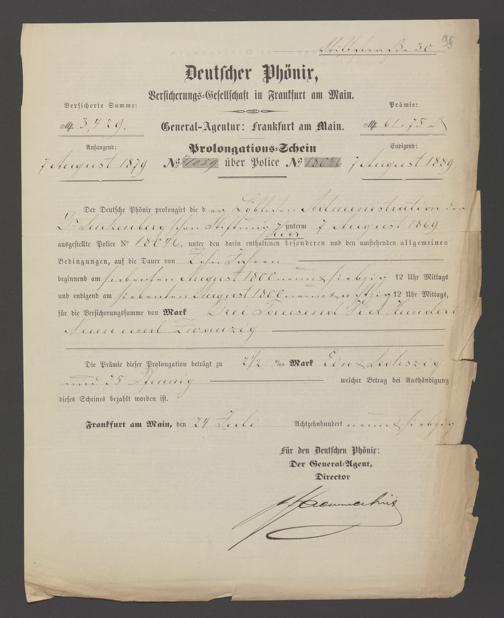 95
Deutscher Phönix,
Versicherungs-Gesellschaft in Frankfurt am Main.
Versicherte Summe:
Prämie:
M. 3,429.
General-Agentur: Frankfurt am Main.
M. 61.75
Anfangend:
Prolongations-Schein
Endigend:
7 August 1879
No. über Police No.
7 August 1889
Der Deutsche Phönix prolongirt die d er Löblichen Administration der
Dr. Senckenberg'schen Stiftung hier unterm 7 August 1869
ausgestellte Police No. 18076, unter den darin enthaltenen besonderen und den umstehenden allgemeinen
Bedingungen, auf die Dauer von Zehn Jahren
beginnend am siebenten August 1800 neun & siebzig 12 Uhr Mittags
und endigend am siebenten August 1800 neun & achtzig 12 Uhr Mittags,
für die Versicherungssumme von Mark Drei Tausend Vier Hundert
Neun und Zwanzig
Die Prämie dieser Prolongation beträgt zu Mark Ein & Sechszig
und 75 Pfennig welcher Betrag bei Aushändigung
dieses Scheines bezahlt worden ist.
Frankfurt am Main, den 24 Juli Achtzehnhundert neun & siebzig
Für den Deutschen Phönix:
Der General-Agent,
Director